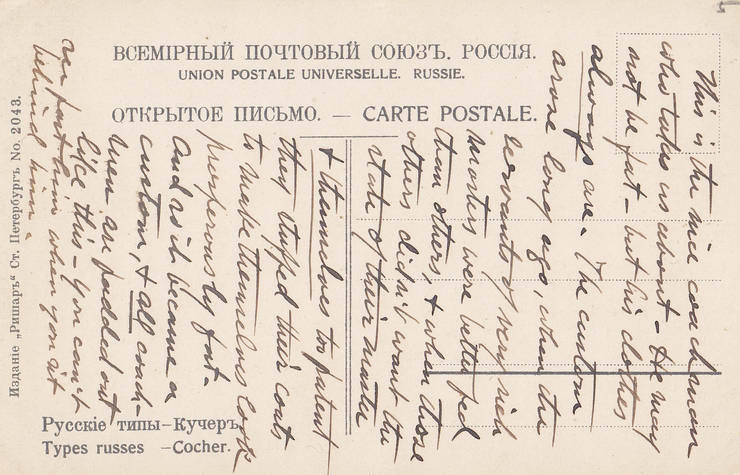 ВСЕМІРНЫЙ ПОЧТОВЫЙ СОЮЗЪ. РОССІЯ.
UNION POSTALE UNIVERSELLE. RUSSIE.
ОТКРЫТОЕ ПИСЬМО. — CARTE POSTALE.
This is the nice coachman
who takes us about – He may
not be fat – but his clothes
always are. The custom
arose long ago, when the
servants of very rich
masters were better fed
than others, & when those
others didn't want the
state of their master
& themselves to patent
they stuffed their coats
to make themselves look
prosperously fat –
And so it became a
custom, & all coach-
men are padded out
like this – You can't
see past him when you sit
behind him –
Русскіе типы–Кучеръ.
Types russes –Cocher.
Изданіе „Ришаръ“ Ст. Петербургъ No. 2043.
5